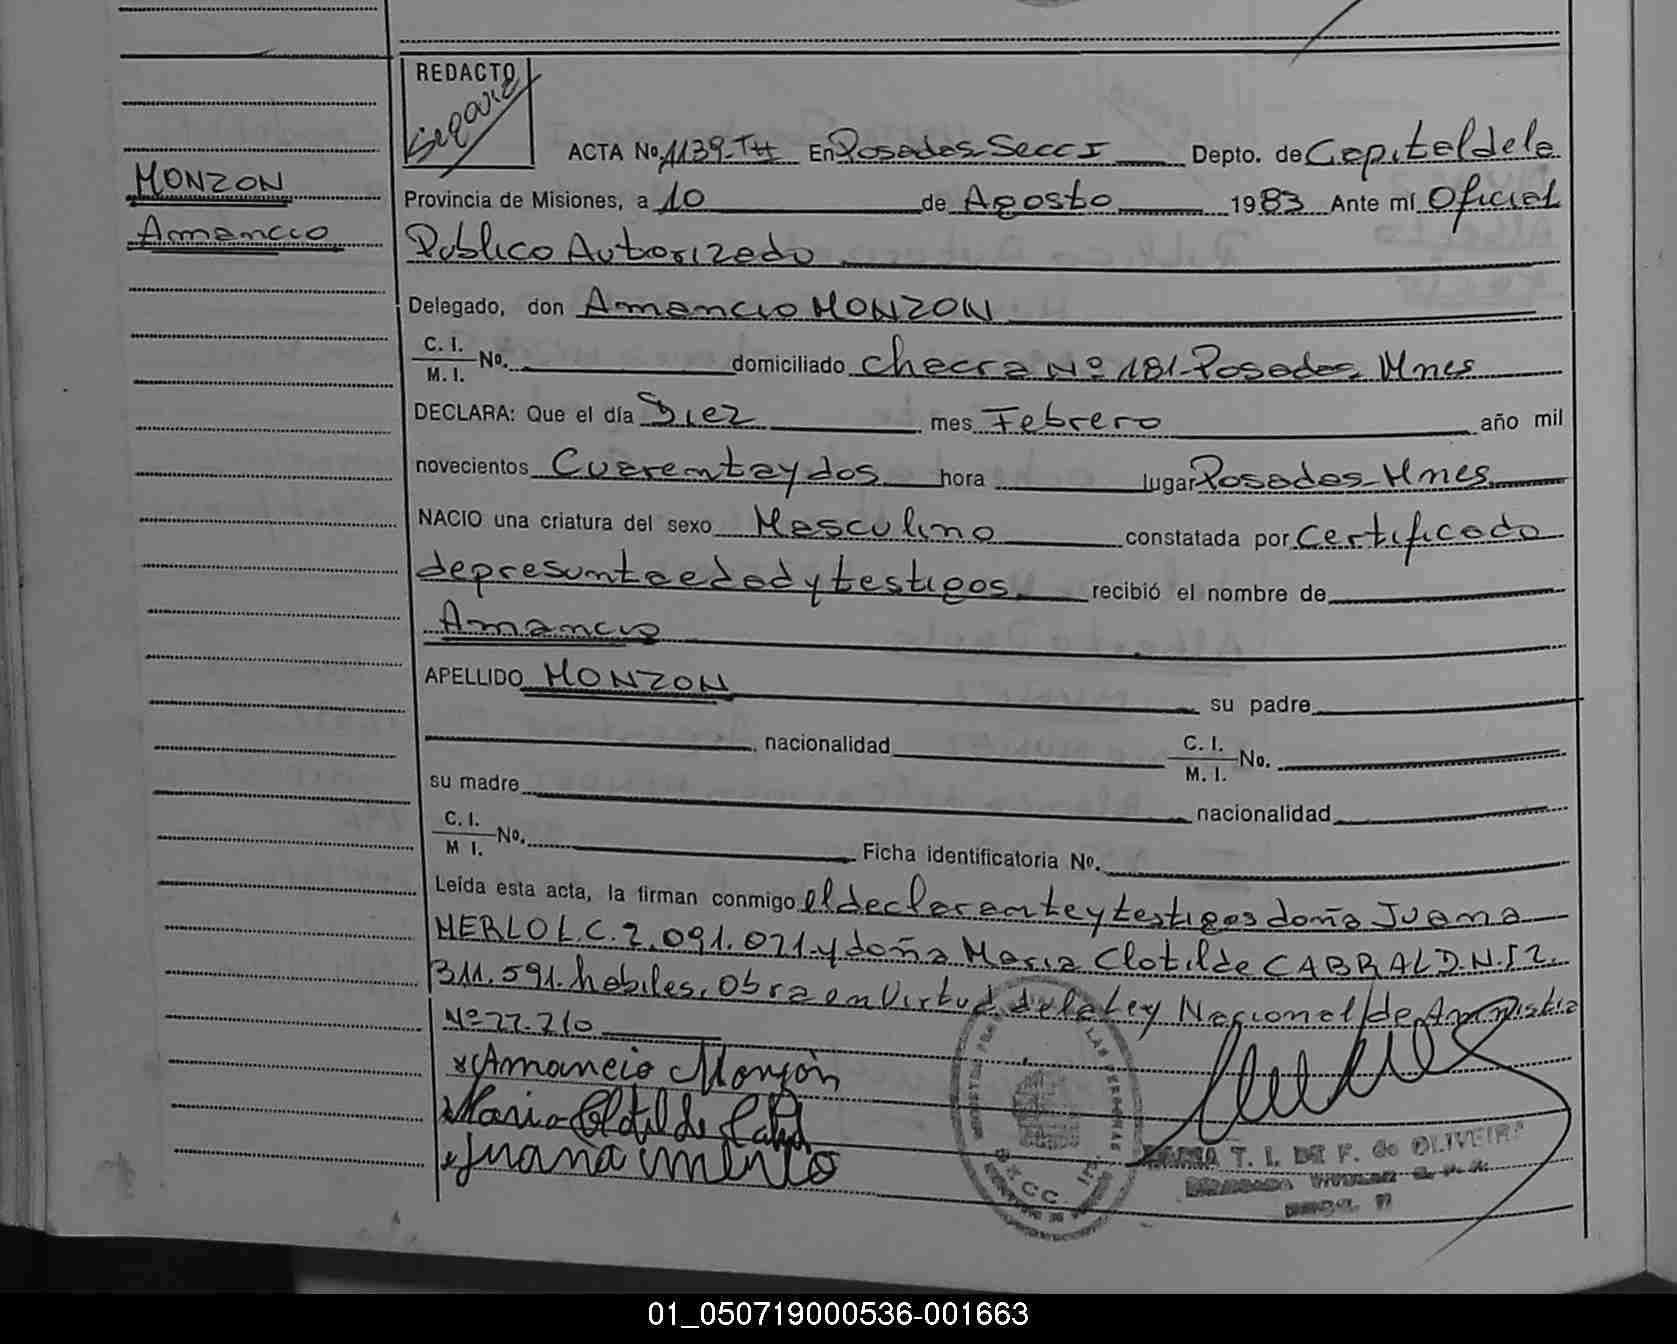 REDACTO
ACTA No. 1139-TH En Posadas Secc I Depto. de Capital de la
MONZON
Provincia de Misiones, a 10 de Agosto 1983 Ante mí Oficial
Amancio
Público Autorizado
Delegado, don Amancio MONZON
C. I. M. I. No. domiciliado Chacra Nº 181-Posadas Mnes
DECLARA: Que el día Diez mes Febrero año mil
novecientos Cuarentaydos hora lugar Posadas-Mnes
NACIO una criatura del sexo Masculino constatada por Certificado
de presunta edad y testigos. recibió el nombre de
Amancio
APELLIDO MONZON su padre
, nacionalidad C. I. M. I. No.
su madre nacionalidad
C. I. M I. No. Ficha identificatoria No.
Leída esta acta, la firman conmigo el declarante y testigos doña Juana
MERLO L.C. 2.091.021.y doña Maria Clotilde CABRAL D.N.I 2.
311.591.habiles.Obra en Virtud de la Ley Nacional de Amnistia
Nº22.210
x Amancio Monzón
Maria Clotilde Cabral
Juana merlo
T. I. DE F. de OLIVEIRA
01_050719000536-001663